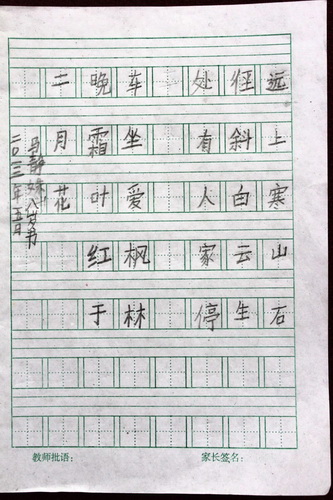 远上寒山石
径斜白云生
处有人家停
车坐爱枫林
晚霜叶红于
二月花
马静姝八岁书
教师批语：
家长签名：